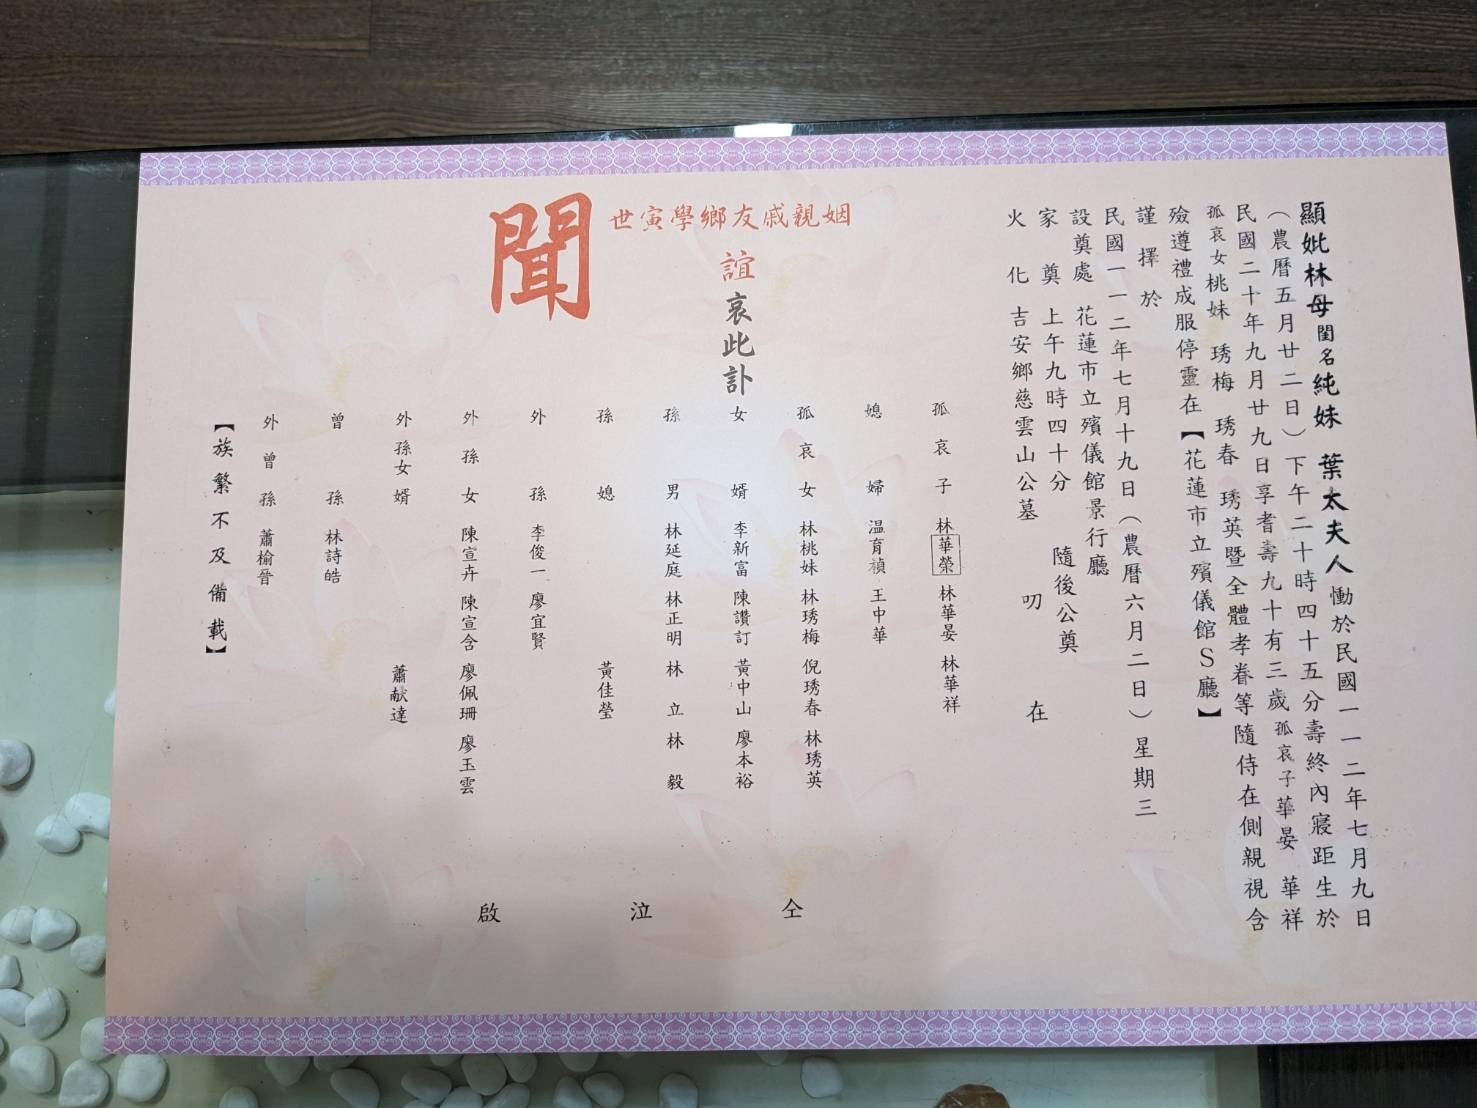 顯妣林母閨名純妹 葉太夫人慟於民國一一二年七月九日
（農曆五月廿二日）下午二十時四十五分壽終內寢距生於
民國二十年九月廿九日享耆壽九十有三歲孤哀子華晏 華祥
孤哀女桃妹 琇梅 琇春 琇英暨全體孝眷等隨侍在側親視含
殮遵禮成服停靈在【花蓮市立殯儀館S廳】
謹擇於
民國一一二年七月十九日（農曆六月二日）星期三
設奠處 花蓮市立殯儀館景行廳
家奠 上午九時四十分 隨後公奠
火化 吉安鄉慈雲山公墓 叨在
姻親戚友鄉學寅世
誼哀此訃
聞
孤哀子 林華榮 林華晏 林華祥
媳婦 温育禎 王中華
孤哀女 林桃妹 林琇梅 倪琇春 林琇英
女婿 李新富 陳讚訂 黃中山 廖本裕
孫男 林延庭 林正明 林立 林毅
孫媳 黃佳瑩
外孫 李俊一 廖宜賢
外孫女 陳宣卉 陳宣含 廖佩珊 廖玉雲
外孫女婿 蕭献達
曾孫 林詩皓
外曾孫 蕭榆晉
【族繁不及備載】
仝泣啟